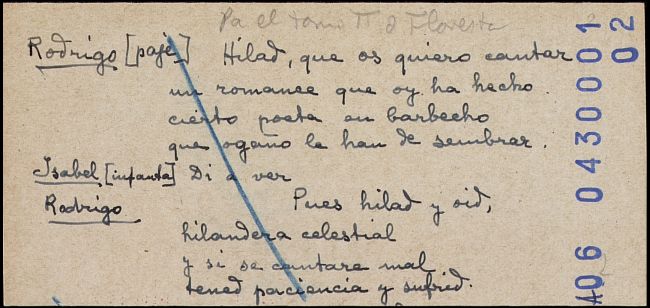 Pa el tomo II d Floresta
Rodrigo [paje] Hilad, que os quiero cantar
un romance que oy ha hecho.
cierto poeta en barbecho
que ogaño le han de sembrar.
Isabel [infanta] Di a ver
Rodrigo Pues hilad y oid,
hilandera celestial
y si se cantare mal
tened paciencia y sufrid.
406 0430001
02